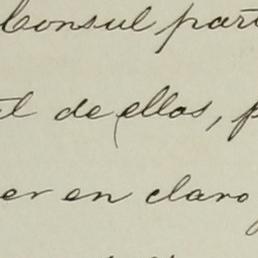 Consul part
de ellas, p
er en claro